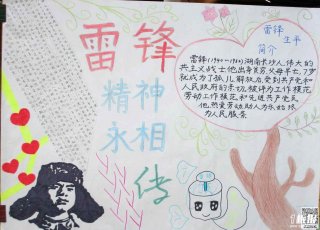 雷锋
精神
永相
传
雷锋
生平
简介
雷锋(1940-1962)湖南长沙人,伟大的
共产主义战士,他出身贫穷,父母早亡,7岁
就成为了孤儿,解放后,受到共产党和
人民政府的
被评为工作模范
劳动工作模范和先进共产党员
他,热爱劳动,助人为乐,始终
为人民服务